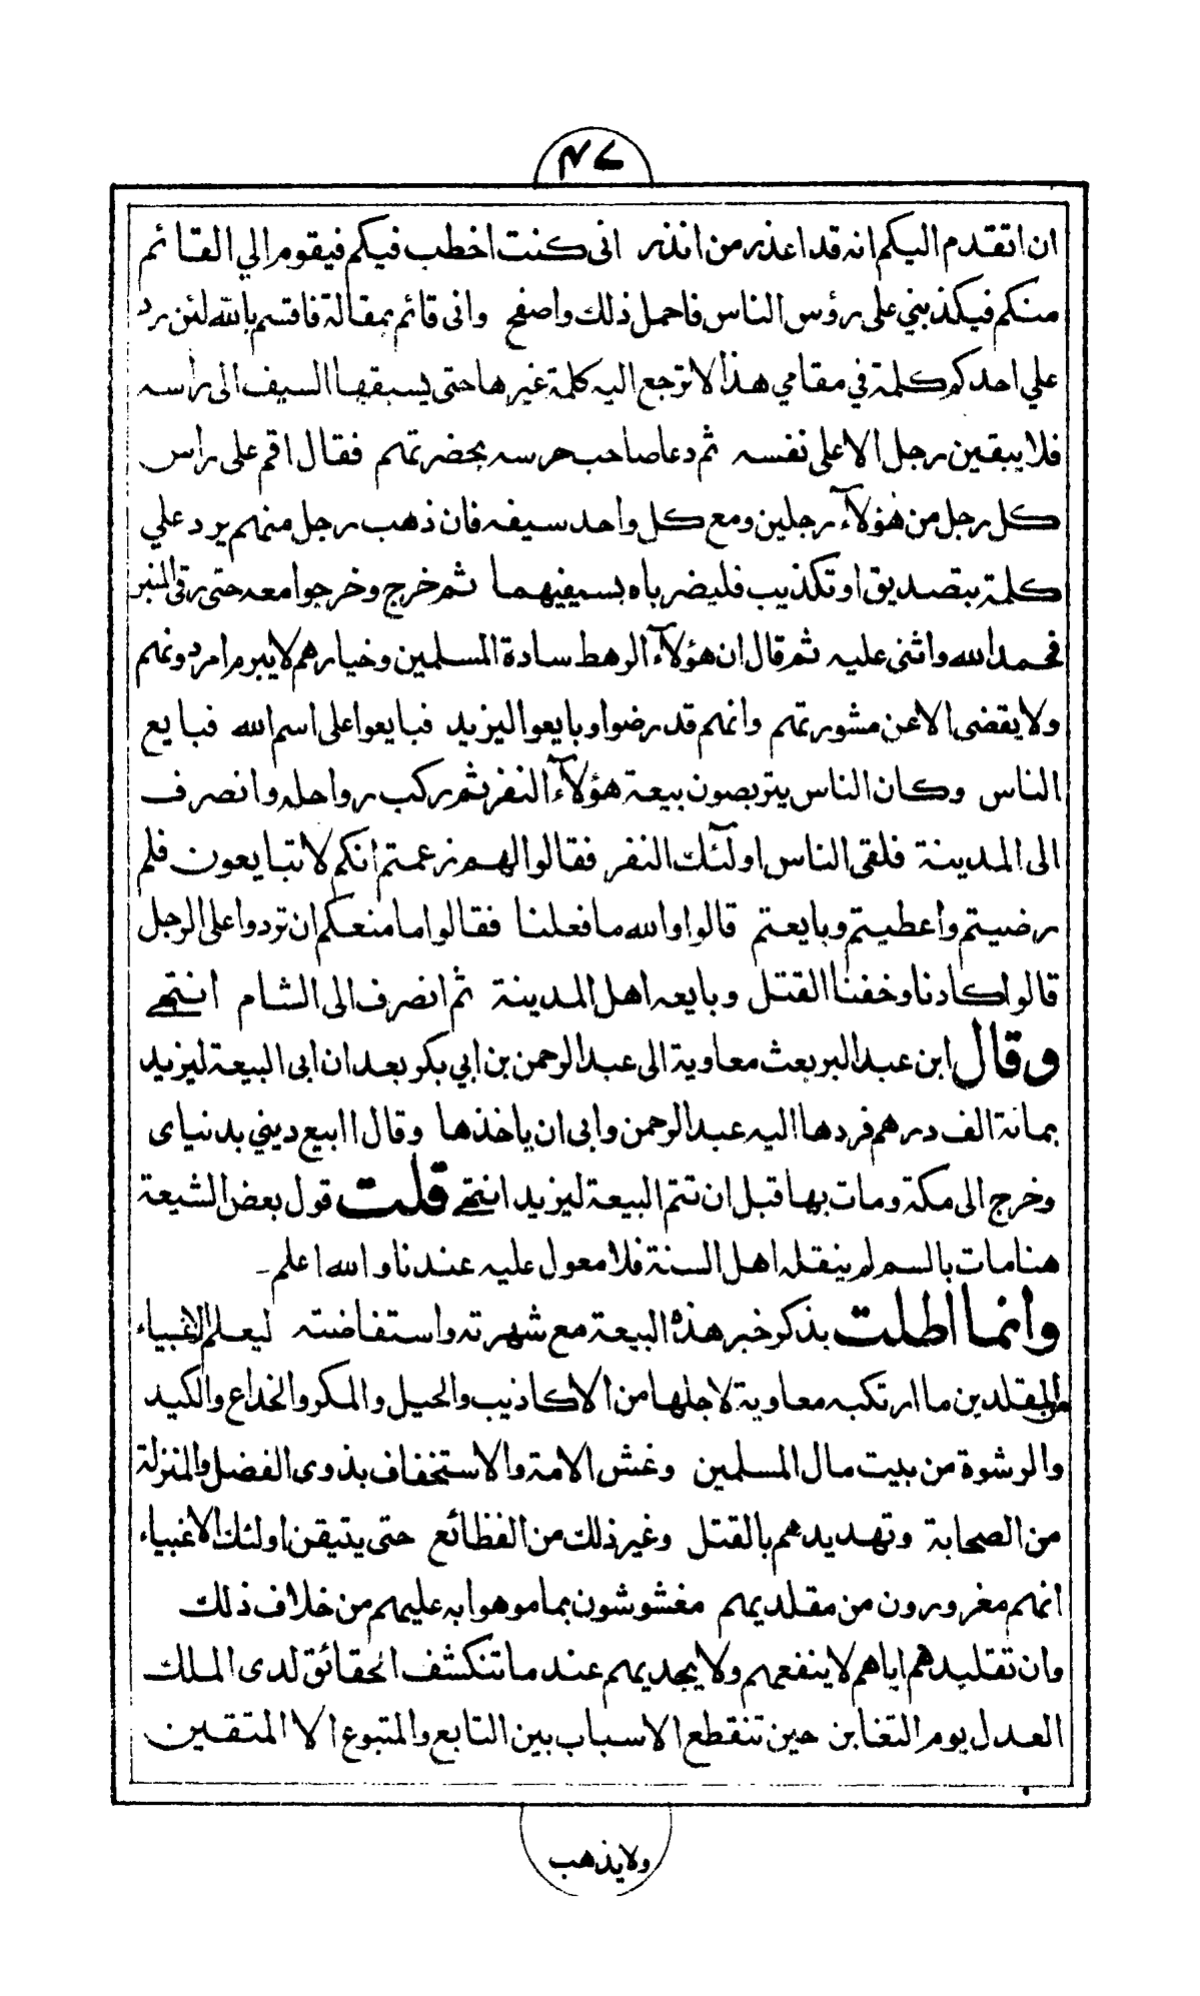 ٤٧
ان اتقدم اليكم انه قد اعذر من انذر انى كنت اخطب فيكم فيقوم الي القائم
منكم فيكذبني على رؤس الناس فاحمل ذلك واصفح وانى قائم بمقالة فاقسم بالله لئن رد
علي احدكم كلمة في مقامي هذا لا ترجع اليه كلمة غيرها حتى يسبقها السيف الى رأسه
فلا يبقين رجل الا على نفسه ثم دعا صاحب حرسه بحضرتهم فقال اقم على رأس
كل رجل من هؤلآء رجلين ومع كل واحد سيفه فان ذهب رجل منهم يرد علي
كلمة بتصديق او تكذيب فليضرباه بسيفيهما ثم خرج وخرجوا معه حتى رقى المنبر
فحمد الله واثنى عليه ثم قال ان هؤلآء الرهط سادة المسلمين وخيارهم لا يبرم امر دونهم
ولا يقضى الا عن مشورتهم وانهم قد رضوا وبايعوا ليزيد فبايعوا على اسم الله فبايع
الناس وكان الناس يتربصون بيعة هؤلآء النفر ثم ركب رواحله وانصرف
الى المدينة فلقى الناس اولٓئك النفر فقالوا لهم زعمتم انكم لا تبايعون فلم
رضيتم واعطيتم وبايعتم قالوا والله ما فعلنا فقالوا ما منعكم ان تردوا على الرجل
قالوا كادنا وخفنا القتل وبايعه اهل المدينة ثم انصرف الى الشام انتهى
وقال ابن عبد البر بعث معاوية الى عبد الرحمن بن ابي بكر بعد ان ابى البيعة ليزيد
بمائة الف درهم فردها اليه عبد الرحمن وابى ان ياخذها وقال اابيع ديني بدنياى
وخرج الى مكة ومات بها قبل ان تتم البيعة ليزيد انتهى قلت قول بعض الشيعة
هنا مات بالسم لم ينقله اهل السنة فلا معول عليه عندنا والله اعلم ـ
وانما اطلت بذكر خبر هذه البيعة مع شهرته واستفاضته ليعلم الاغبياء
المقلدين ما ارتكبه معاوية لاجلها من الاكاذيب والحيل والمكر والخداع والكيد
والرشوة من بيت مال المسلمين وغش الامة والاستخفاف بذوى الفضل والمنزلة
من الصحابة وتهديدهم بالقتل وغير ذلك من الفظائع حتى يتيقن اولئك الاغبياء
انهم مغرورون من مقلديهم مغشوشون بما موهوا به عليهم من خلاف ذلك
وان تقليدهم اياهم لا ينفعهم ولا يجديهم عند ما تنكشف الحقائق لدى الملك
العدل يوم التغابن حين تنقطع الاسباب بين التابع والمتبوع الا المتقين
ولا يذهب